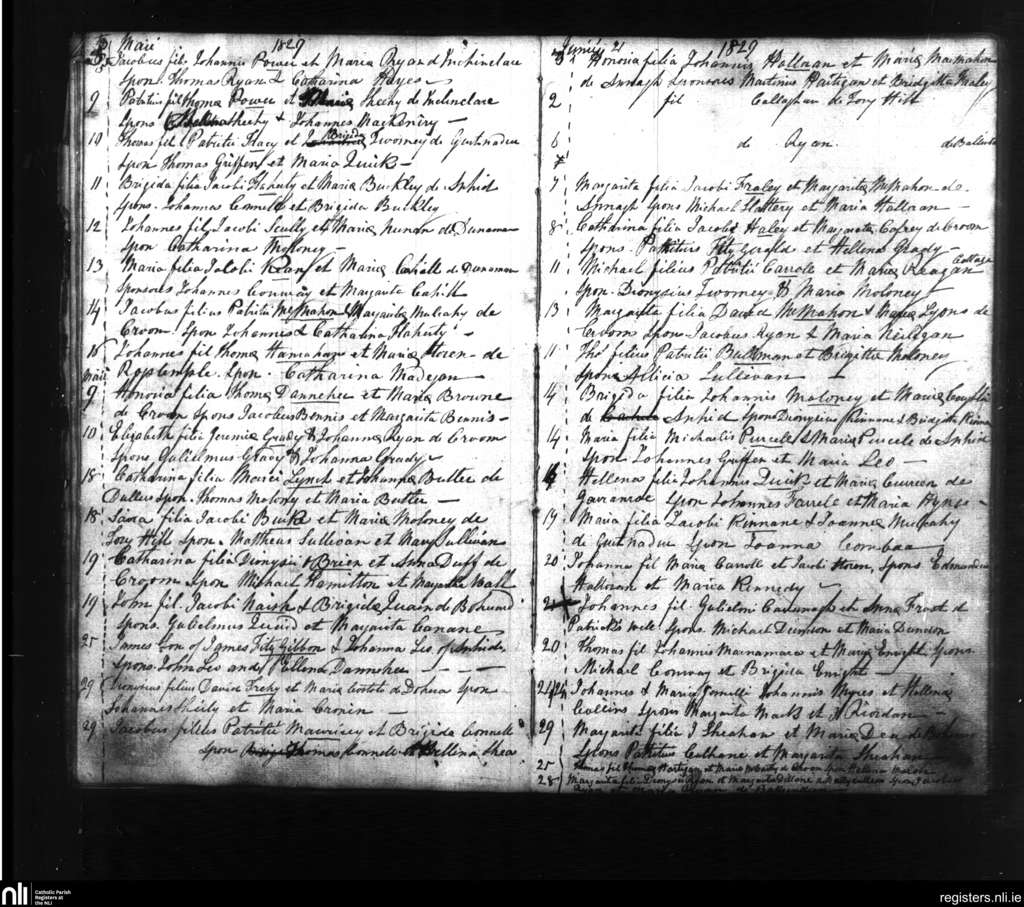 Maii 1829
Jacobus fil Johannis Power et Maria Ryan d Inchinclare
Spon. Thomas Ryan & Catharina Hayes
9 Patritius fil Thomæ Power et Maria Sheehy de Inchinclare
Spons Sheehy & Johannes MacKeniry
10 Thomas fil Patritii Tracy et Brigida Twomey de Gurtnadu
Spon Thomas Griffen et Maria Quirk
11 Brigida filia Jacobi Flaherty et Maria Buckley de Anhid
Spons. Johanna Connell et Brigida Buckley
12 Johannes fil Jacobi Scully et Maria Nunan d Dunaman
Spon Catharina Moloney
13 Maria filia Jacobi Kean et Maria Cahill de Dunaman
Sponsores Johannes Conway et Margarita Cahill
14 Jacobus filius Patritii McMahon & Margarita Mulcahy de
Croom. Spon Johannes & Catharina Flaherty
16 Johannes fil Thomæ Hanrahan et Maria Horen de
Rosstemple. Spon. Catharina Madegan
Maii
9 Honoria filia Thomæ Dannehee et Maria Browne
de Croom Spons Jacobus Bennis et Margarita Bennis
10 Elizabetha filia Jeremiæ Grady & Johanna Ryan de Croom
Spons Gulielmus Grady & Johanna Grady
18 Catharina filia Mauricii Lynch et Johanna Butler de
Dullas Spon. Thomas Molony et Maria Butler
18 Sara filia Jacobi Burke et Maria Moloney de
Tory Hill Spon. Mattheus Sullivan et Mary Sullivan
19 Catharina filia Dionysii O Brien et Anna Duff de
Croom Spon Michael Hamilton et Margarita Wall
19 John fil Jacobi Naish & Brigida Quain de Boherard
Spons. Gulielmus Quaid et Margarita Canane
25 James Son of James Fitz Gibbon & Johanna Leo of Anhid
Spons John Leo and Ellena Dannehee
29 Dionysius filius David Frehy et Maria Costelo d Dohera Spon
Johannis Sheehy et Maria Cronin
29 Jacobus filius Patritii Mauricey et Brigida Connell
Spon Thomas Connell et Hellena Shea
Junii 1829
Honoria filia Johannis Hallaan et Maria MacMahon
de Annagh Sponsores Martinus Hartigan et Bridgitta Maley
2 fil Callaghan de Tory Hill
6 de Ryan de
7 Margarita filia Jacobi Fraley et Margarita McMahon de
Annagh Spons Michael Slattery et Maria Hallaan
8 Catharina filia Jacobi Haley et Margarita Cofrey de Croom
Spons. Patritius Fitz Gerald et Hellena Grady
11 Michael filius Patritii Carroll et Maria Reagan Cottage
Spon. Dionysius Twomey & Maria Moloney
13 Margarita filia David McMahon & Maria Lyons de
Croom Spons. Jacobus Ryan & Maria Neiligan
11 Tho filius Patritii Bullman et Brigitta Moloney
Spons Alicia Sullivan
14 Brigida filia Johannis Moloney et Maria
de Anhid Spons Dionysius Kinnane & Bridgitta
14 Maria filia Michaelis Purcele & Maria Purcele de Anhid
Spon Johannes Griffen et Maria Leo
Hellena filia Johannis Quirk et Maria Currien de
Garranroe Spon Johannes Farrele et Maria Hynes
19 Maria filia Jacobi Kinnane & Joanna Mulcahy
de Gurtnadu Spon Joanna Coombaa
20 Johanna fil Maria Carroll et Jacobi Horen, Spons Edmundus
Halloran et Maria Kennedy
Johannes fil Gulielmi Cavanagh et Anna Frost d
Patricks Well Spons. Michael Dundon et Maria Dundon
20 Thomas fil Johannis Mainamara et Mary Enright Spons.
Michael Conway et Brigida Enright
24 24 Johannes & Maria Gemelli Johannis Myres et Hellena
Collins Spons Margarita Mack et Riordan
29 Margarita filia J Sheahan et Maria Dea de
Spons Patritius Culhane et Margarita Sheahan
25 Thomas fil Thomæ Hartigan et Maria de Croom Spon Hellena
28 Margarita filia Dionysii Ryan et Margarita
nli
Catholic Parish
Registers at
the NLI
registers.nli.ie